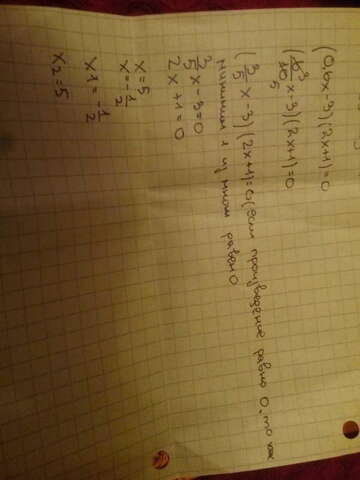 (0,6x-3)(2x+1)=0
(6/10 3/5 x-3)(2x+1)=0
(3/5x-3)(2x+1)=0(если произведение равно 0, то как
минимум 1 из множ равен 0
3/5x-3=0
2x+1=0
x=5
x=-1/2
x1=-1/2
x2=5